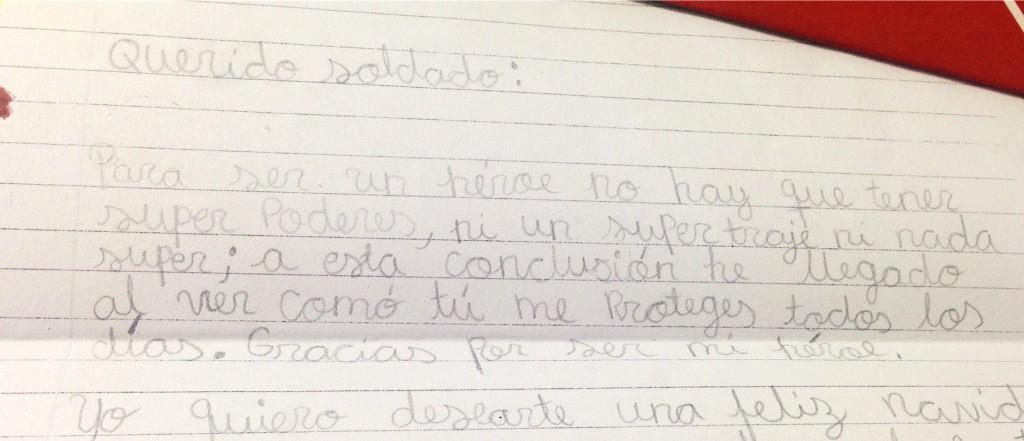 Querido soldado:
Para ser un héroe no hay que tener
super Poderes, ni un super traje ni nada
super; a esta conclusión he llegado
al ver comó tú me Proteges todos los
días. Gracias por ser mi héroe.
Yo quiero desearte una feliz navid